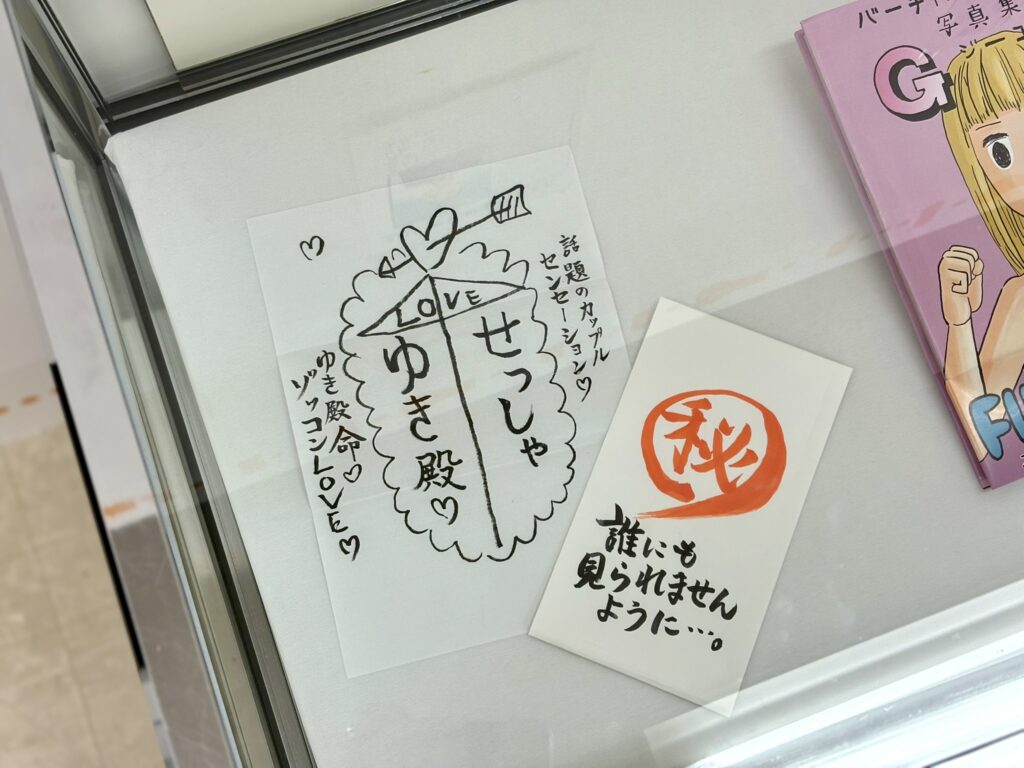 話題のカップル
センセーション♡
LOVE
せっしゃ
ゆき殿♡
ゆき殿命♡
ゾッコンLOVE♡
秘
誰にも
見られません
ように…。
写真集
G